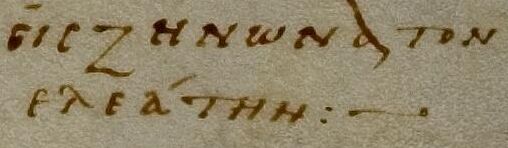 εἰς ζηνωνα τὸν
ελεάτην :—